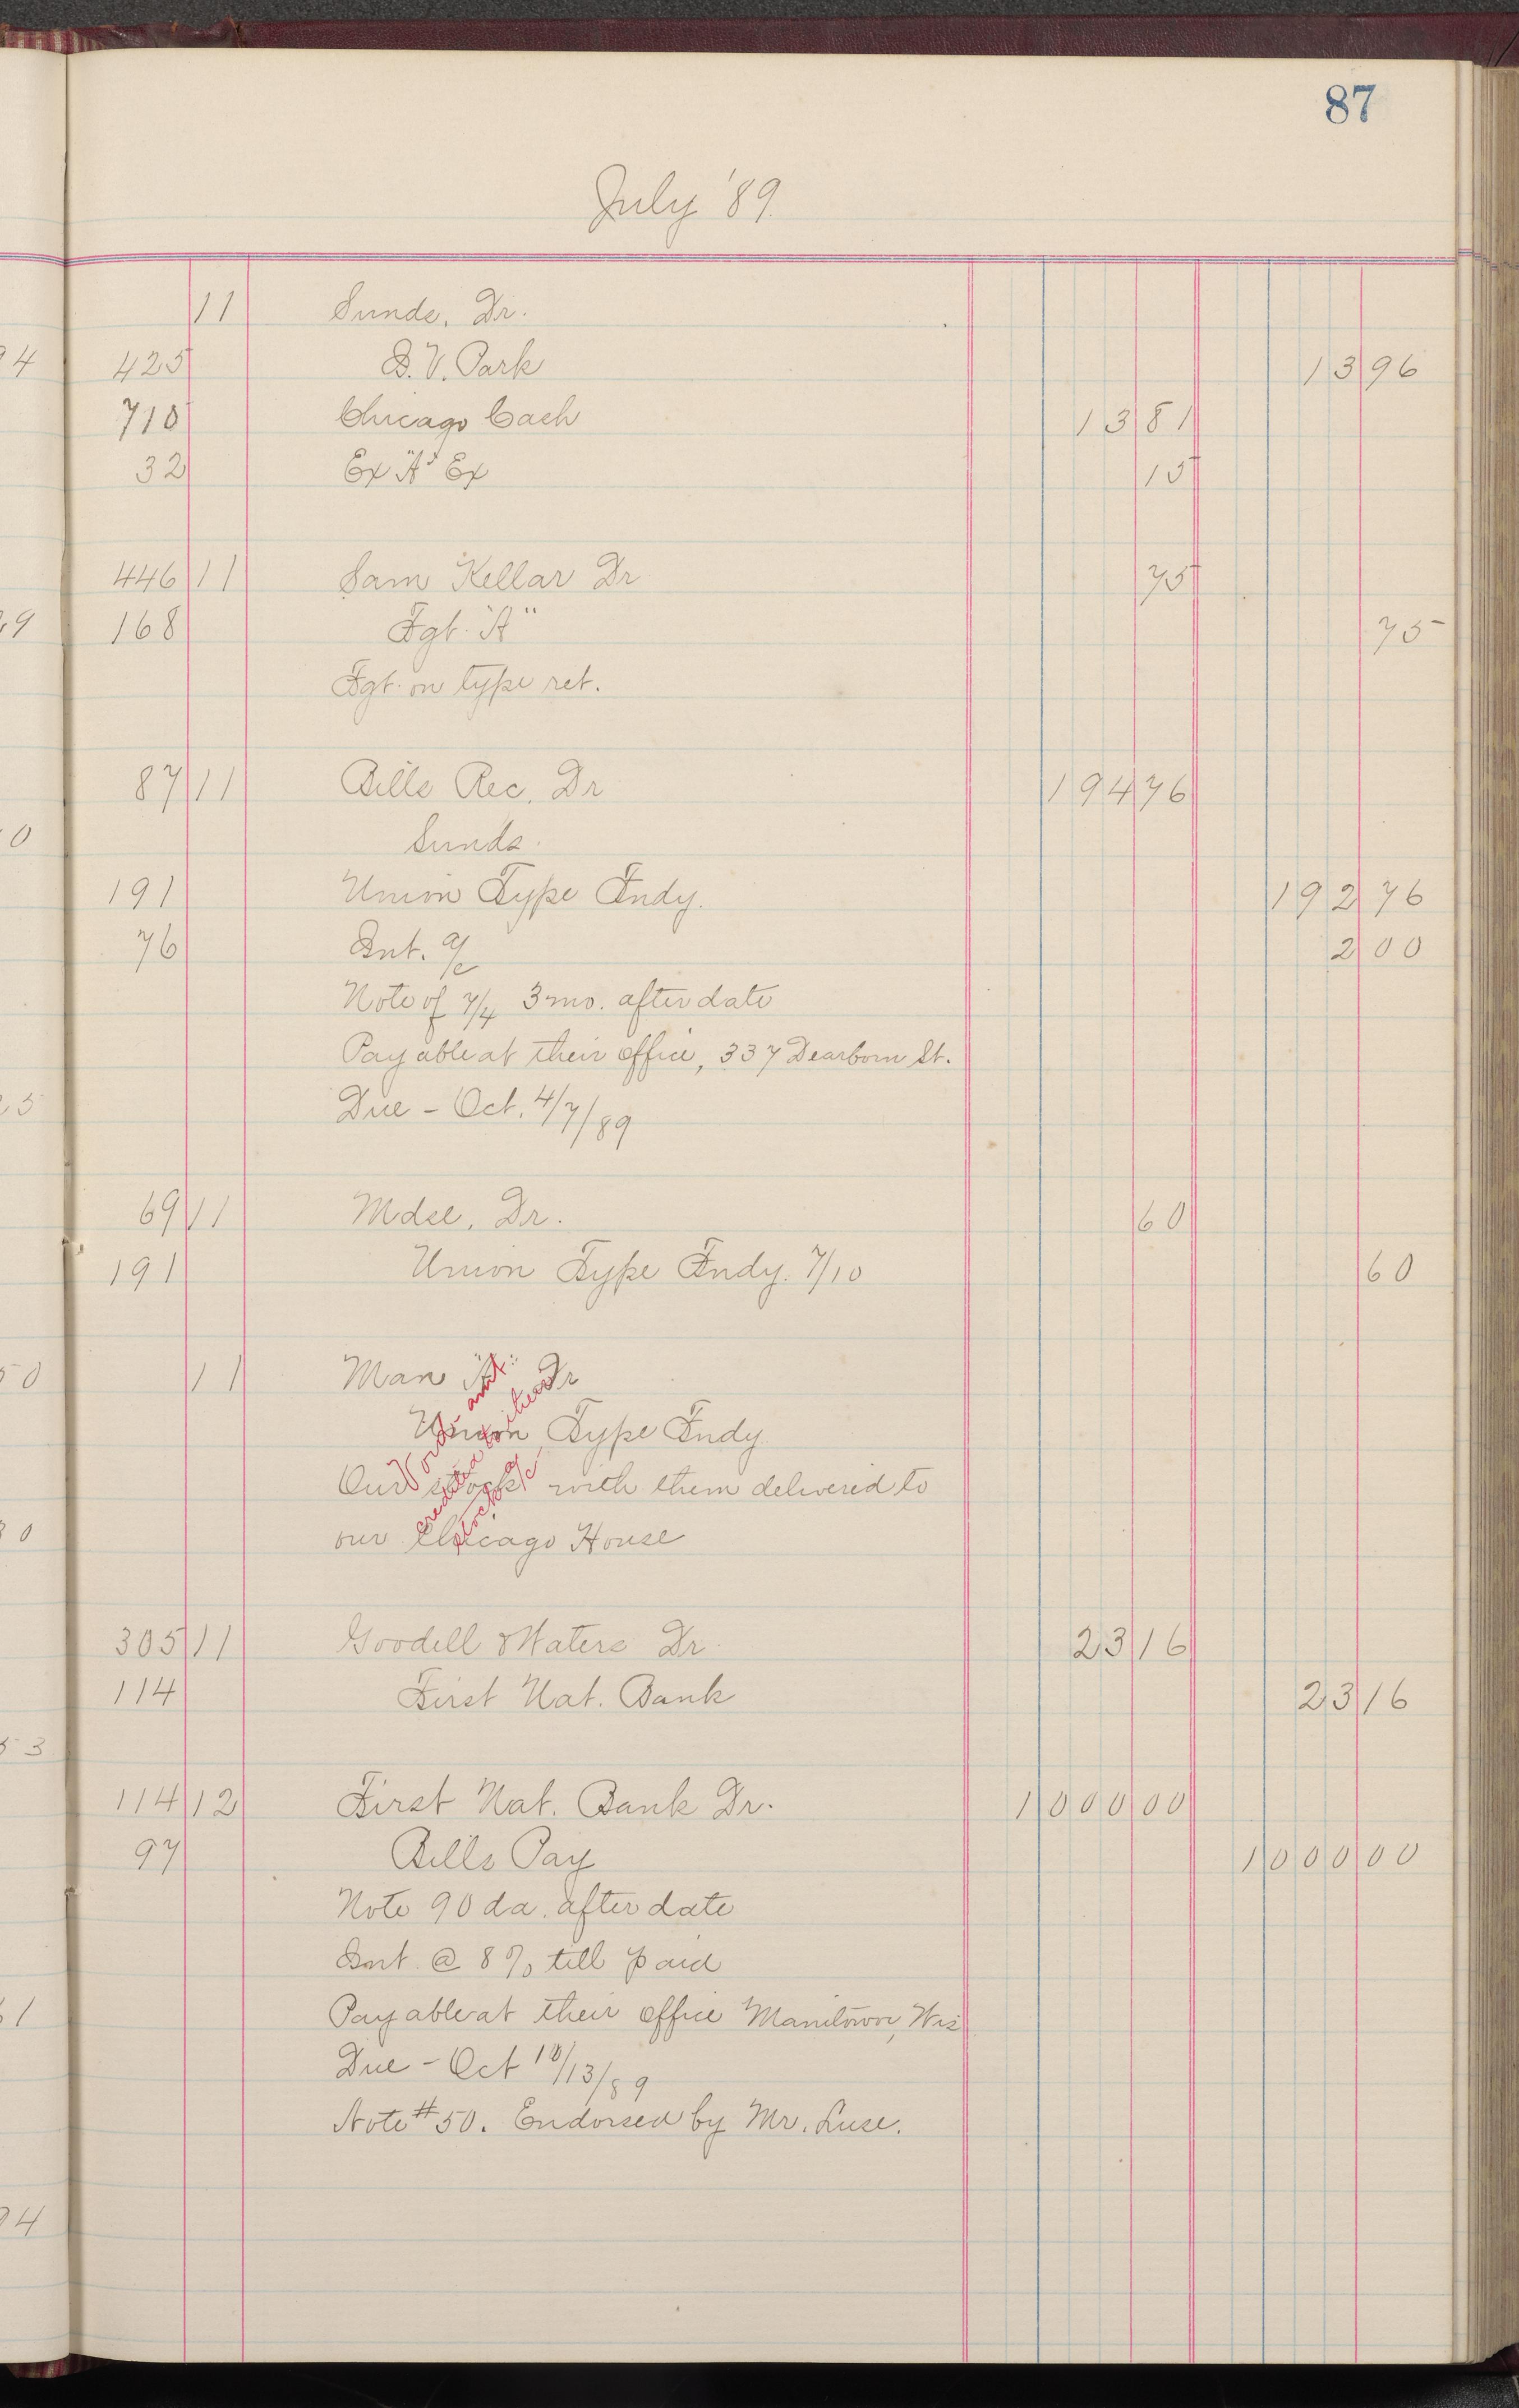 87
July '89
11 Sunds, Dr.
425 D. V. Park 13 96
710 Chicago Cash 13 81
32 Ex "A" Ex 15
446 11 Sam Kellar Dr 75
168 Fgt. "A" 75
Fgt. on type ret.
87 11 Bills Rec. Dr 194 76
Sunds.
191 Union Type Fndy. 192 76
76 Int. a/c 2 00
Note of 7/4 3 mo. after date
Payable at their office, 337 Dearborn St.
Due - Oct. 4/7/89
69 11 Mdse, Dr. 60
191 Union Type Fndy. 7/10 60
11 Man "A" Dr
Union Type Fndy
Our stock with them delivered to
our Chicago House
Void amt.
credited
stock a/c
305 11 Goodell & Waters Dr. 23 16
114 First Nat. Bank 23 16
114 12 First Nat. Bank Dr. 1000 00
97 Bills Pay 1000 00
Note 90 da. after date
Int @ 8% till paid
Payable at their office Manitowoc, Wis
Due - Oct 10/13/89
Note #50. Endorsed by Mr. Luse.